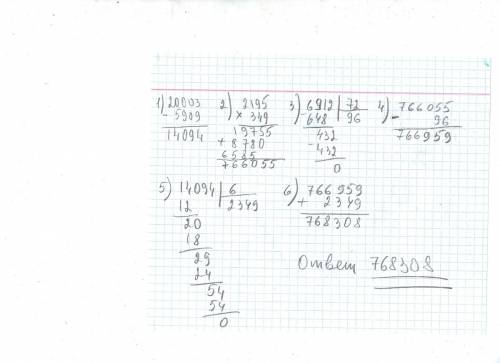 1) 20003 2) 2195 3) 6912 | 72 4) 766055
- 5909 × 349 - 648 96 - 96
14094 19755 432 766959
+ 8780 - 432
6585 0
766055
5) 14094 | 6 6) 766959
12 2349 + 2349
20 768308
18
29
24
54
54
0
Ответ 768308